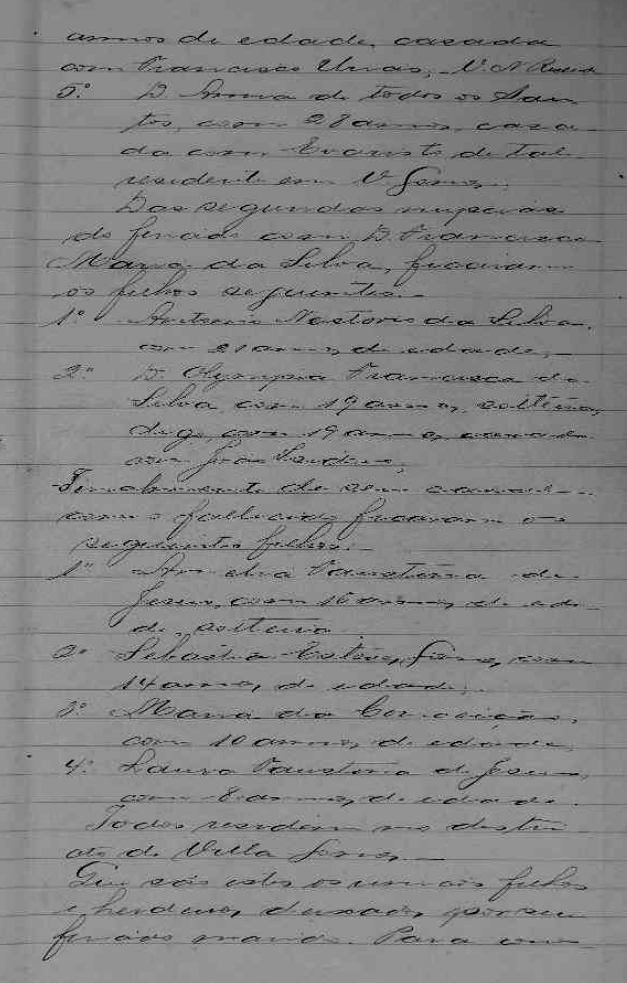 annos de edade, casada
com Francisco Urias, V. N Resid
5º D Anna de todos os San-
tos, com 28 annos, casa-
da com Evaristo de tal
residente em V. Gomes.
Das segundas nupcias
do finado com D. Francisca
Maria da Silva, ficaram
os filhos seguintes.
1º Antonio da Silva,
com 21 annos de edade,
2º D. Olympia Francisca da
Silva, com 19 annos, solteira,
digo, com 19 annos, casada
com João
Finalmente de seu casal
com o fallecido ficaram os
seguintes filhos:
1º Faustina de
Jesus, com 16 annos de eda-
de, solteira
2º Sebastião com
14 annos de edade,
3º Maria da Conceição,
com 10 annos de edade,
4º Laura Faustina de Jesus,
com 8 annos de edade.
Todos residem no distri-
cto de Villa Gomes.
Que são estes os unicos filhos
e herdeiros deixados por seu
finado marido. Para